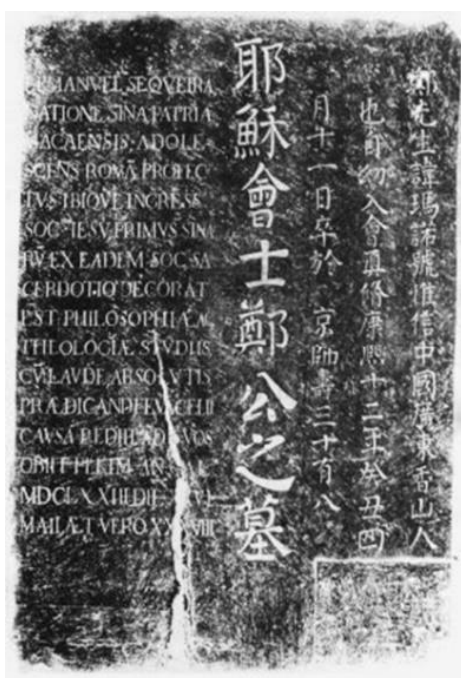 鄭先生諱瑪諾號惟信中國廣東香山人
也自幼入會真脩康熙十二年癸丑四
月十一日卒於 京師壽三十有八
耶穌會士鄭公之墓
EMANVEL SEQVEIRA
NATIONE SINA PATRIA
MACAENSIS. ADOLE-
SCENS ROMĀ PROFEC
TVS IBIQVE INGRESS.
SOC. IESV PRIMVS SINA
RV̄ EX EADEM SOC. SA
CERDOTIO DECORAT
EST. PHILOSOPHIÆ AC
THEOLOGIÆ STVDIIS
CV̄ LAVDE ABSOLVTIS
PRÆDICANDI EVĀGELII
CAVSÂ REDIIT AD SVOS
OBIIT PEKIM. AN
MDCLXXIII DIE
MAII ÆT VERO XXXVIII